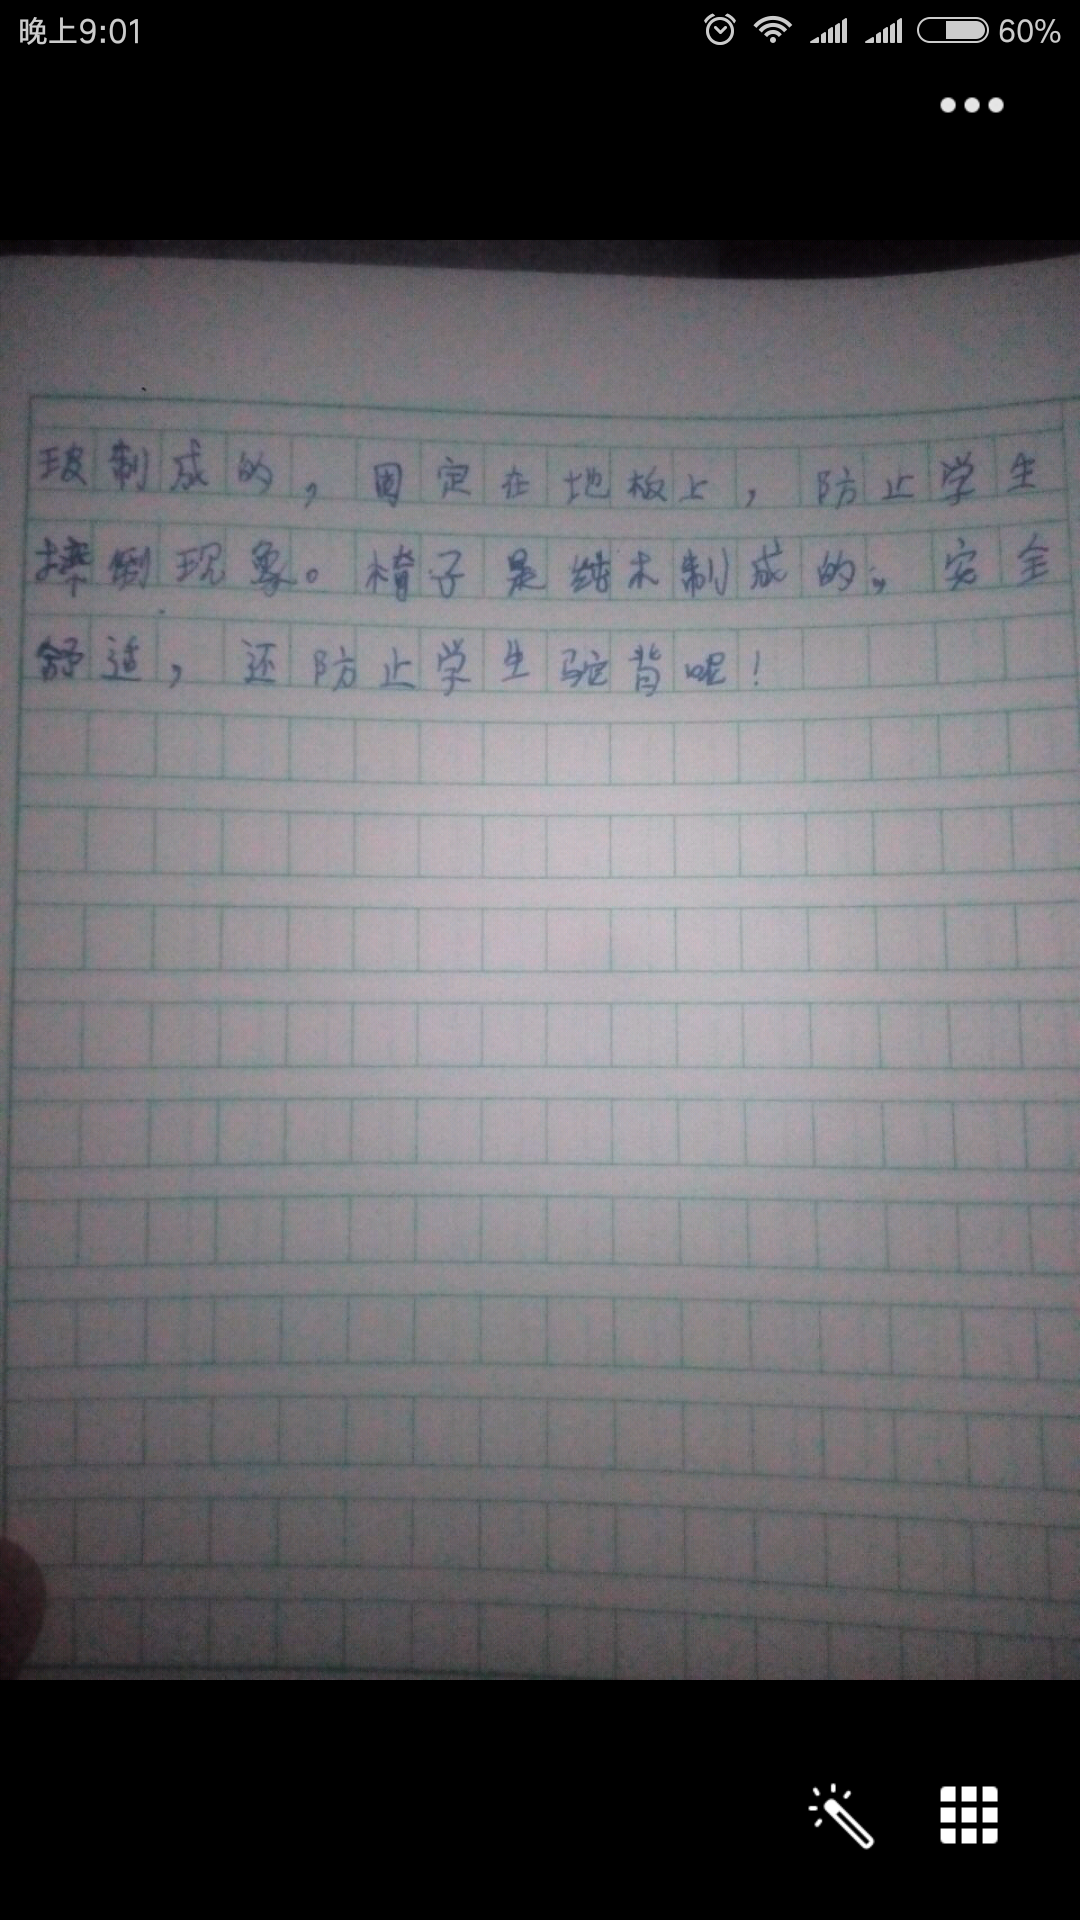 晚上9:01 60%
玻制成的，固定在地板上，防止学生
摔倒现象。椅子是纯木制成的，安全
舒适，还防止学生驼背呢！